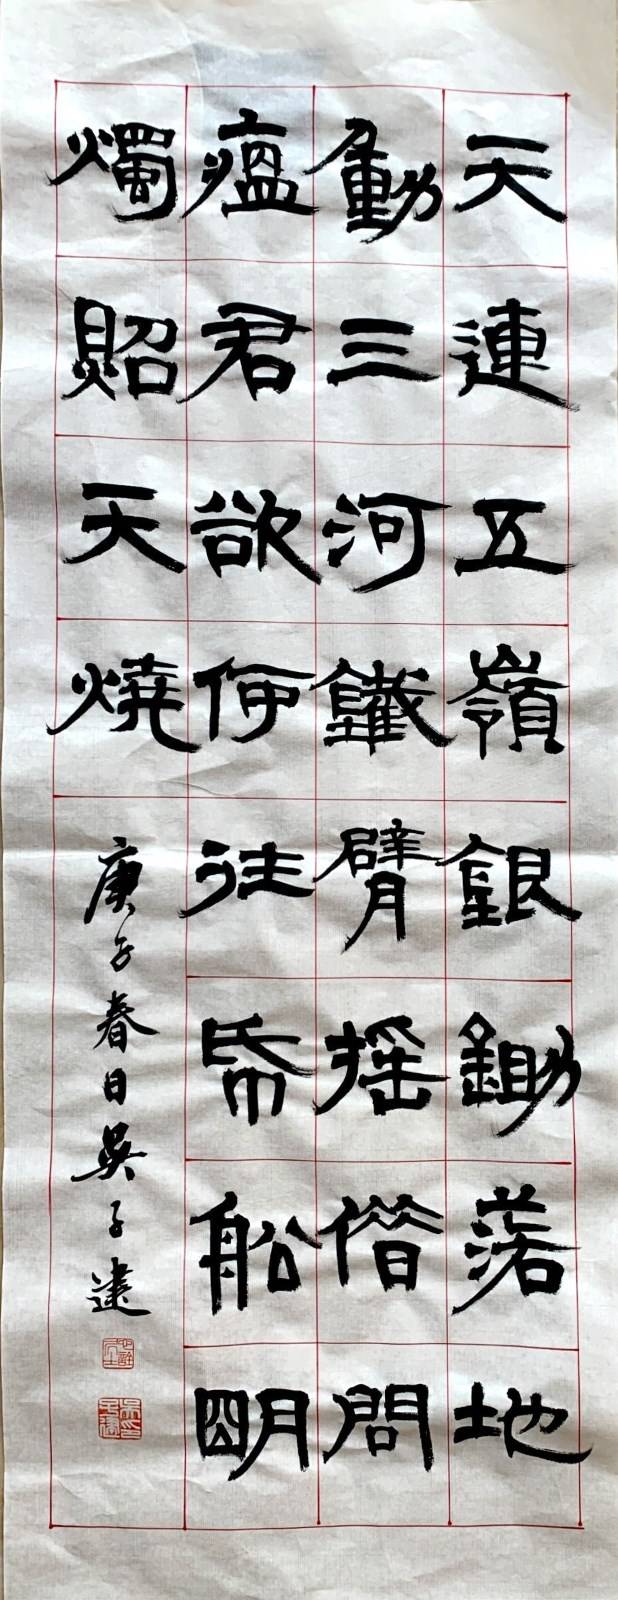 天連五嶺銀鋤落地
動三河鐵臂摇借問
瘟君欲何往帋船明
燭照天燒
庚子春日吳子建